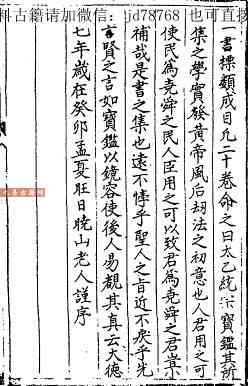 科古籍请加微信：jd78768 也可直接
一書標類成目凡二十卷命之曰太乙統宗寶鑑其所
集之學實發黃帝風后刼法之初意也人君用之可
使民為堯舜之民人臣用之可以致君為堯舜之君豈小
補哉是書之集也遠不悖乎聖人之旨近不戾乎先
賢之言如寶鑑以鏡容使後人易覩其真云大德
七年歲在癸卯孟夏旺日曉山老人謹序